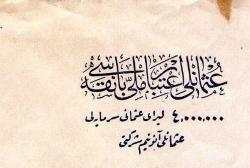 عثمانلی اعتبار ملی بانقه سی
٤,٠٠٠,٠٠٠ لیرای عثمانی سرمایه لی
عثمانلی آنونیم شرکتی